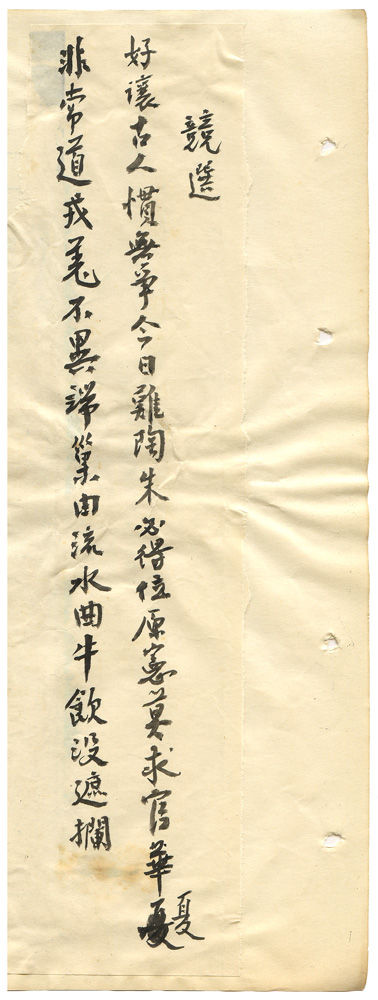 競選
好讓古人慣無爭今日難陶朱必得位原憲莫求官華夏
非常道戎羌不異端巢由流水曲牛飲沒遮攔